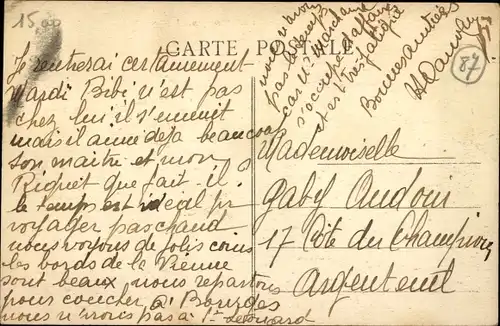 15
CARTE POSTALE
87
Je rentrerai certainement
Mardi Bibi n'est pas
chez lui il s'ennuit
mais il aime deja beaucoup
son maitre et mon
Riquet que fait-il?
le temps est ideal pr
voyager pas chaud
nous voyons de jolis coins
les bords de la Vienne
sont beaux nous repartons
pour coucher à Bourges
nous n'irons pas à St Leonard
nous n'avons
pas le temps
car Mr Marchand
s'occupe d'affaires
et est très fatigué
Bonnes amitiés
Mademoiselle
Gaby Audoui
17 Côte du Champion
Argenteuil